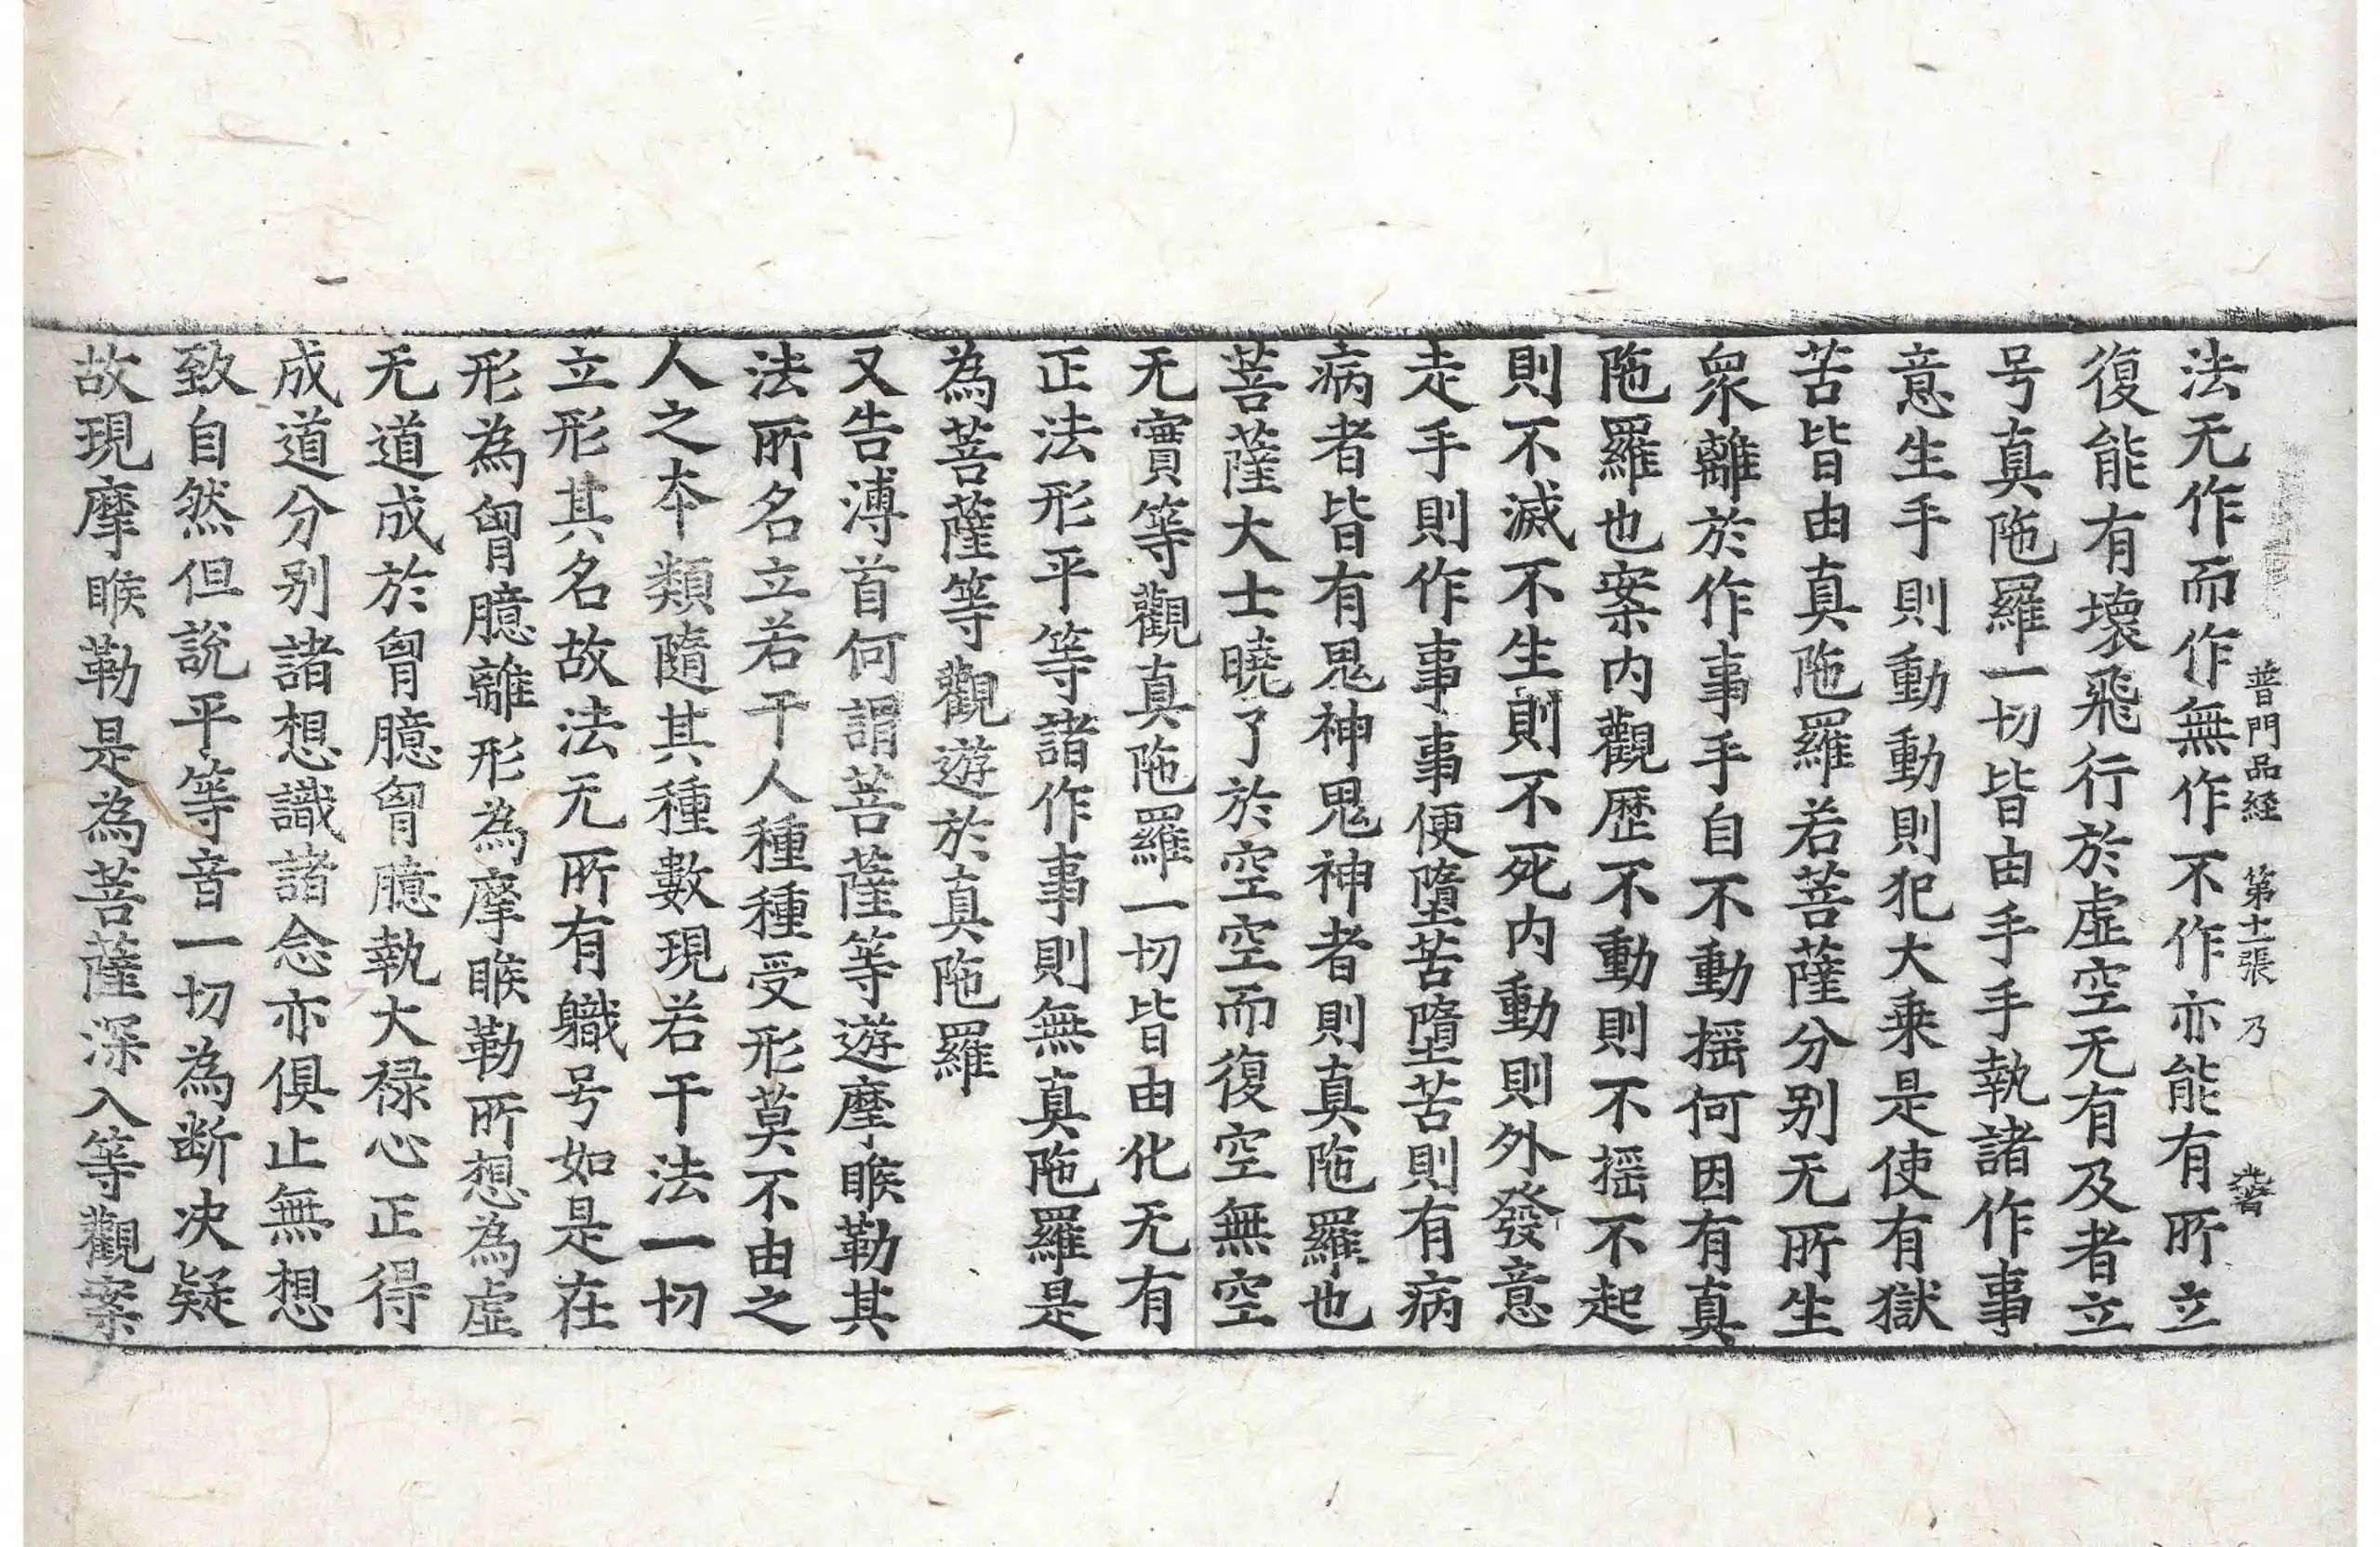 普門品経 第十二張 乃
法无作而作無作不作亦能有所立
復能有壞飛行於虛空无有及者立
号真陁羅一切皆由手手執諸作事
意生手則動動則犯大乗是使有獄
苦皆由真陁羅若菩薩分别无所生
衆離於作事手自不動揺何因有真
陁羅也案内觀歴不動則不揺不起
則不滅不生則不死内動則外發意
走手則作事事便墮苦墮苦則有病
病者皆有鬼神鬼神者則真陁羅也
菩薩大士曉了於空空而復空無空
无實等觀真陁羅一切皆由化无有
正法形平等諸作事則無真陁羅是
為菩薩等觀遊於真陁羅
又告溥首何謂菩薩等遊摩睺勒其
法所名立若干人種種受形莫不由之
人之本類隨其種數現若干法一切
立形其名故法无所有軄号如是在
形為胷臆離形為摩睺勒所想為虛
无道成於胷臆胷臆執大禄心正得
成道分别諸想識諸念亦俱止無想
致自然但說平等音一切為断决疑
故現摩睺勒是為菩薩深入等觀案